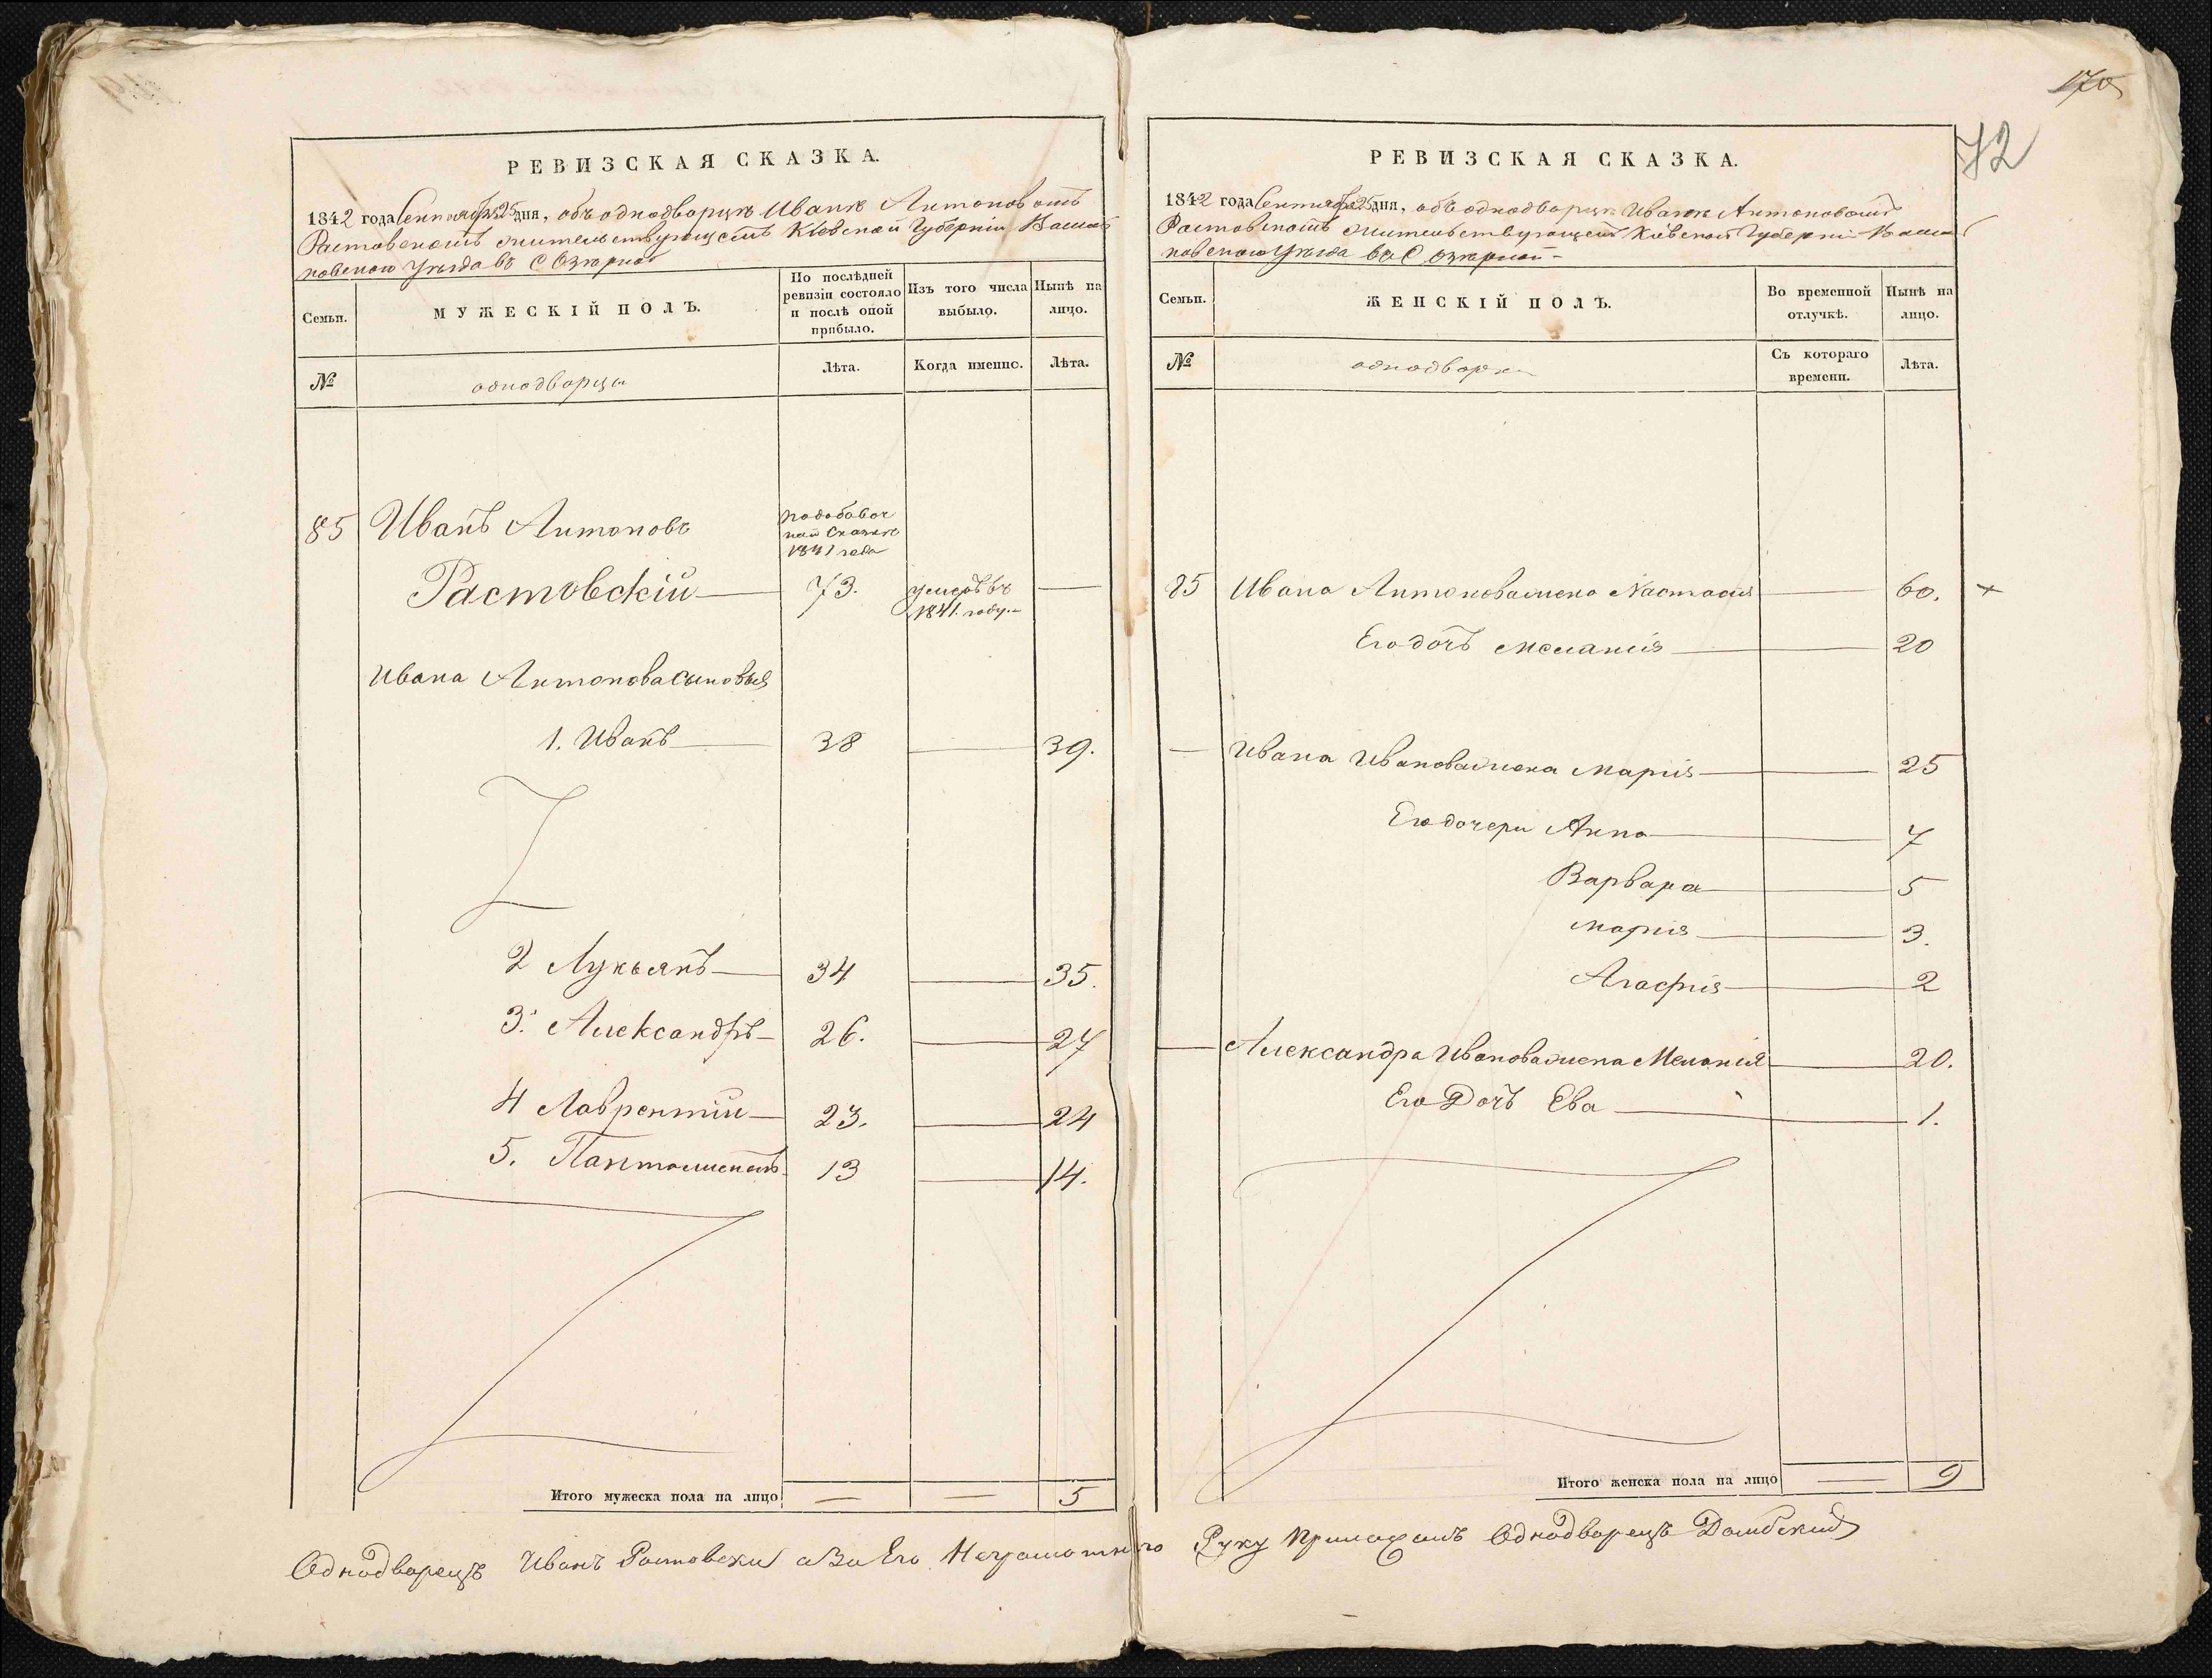 170
72
РЕВИЗСКАЯ СКАЗКА.
1842 года Сентября 25 дня, объ однодворцѣ Иванѣ Антоновомъ
Растовскомъ жительствующемъ Кіевской Губерніи Василь
ковскаго Уѣзда въ С Озѣрной
Семьи.
МУЖЕСКІЙ ПОЛЪ.
По послѣдней
ревизіи состояло
и послѣ оной
прибыло.
Изъ того числа
выбыло.
Нынѣ на
лицо.
№
однодворцы
Лѣта.
Когда именно.
Лѣта.
85 Иванъ Антоновъ
подобавоч
ной Сказкѣ
1841 года
Растовскій 73. умеръ въ
1841. году.
Ивана Антонова сыновья
1. Иванъ 38 39.
2 Лукьянъ 34 35.
3. Александръ 26. 27
4 Лаврентій 23. 24
5. 13 14.
Итого мужеска пола на лицо 5
РЕВИЗСКАЯ СКАЗКА.
1842 года Сентября 25 дня, объ однодворцѣ Иванѣ Антоновомъ
Растовскомъ жительствующемъ Кіевской Губерніи Василь
ковскаго Уѣзда въ С Озѣрной
Семьи.
ЖЕНСКІЙ ПОЛЪ.
Во временной
отлучкѣ.
Нынѣ на
лицо.
№
однодворки
Съ котораго
времени.
Лѣта.
85 Ивана Антонова жена Настасия 60. +
Его дочъ Меланія 20
Ивана Иванова жена Марія 25
Его дочери Анна 7
Варвара 5
Марія 3.
Агафія 2
Александра Иванова жена Меланія 20.
Его Дочъ Ева 1.
Итого женска пола на лицо 9
Однодворецъ Иванъ Ростовски а За Его Неграмотного Руку Приложилъ Однодворецъ Домбский